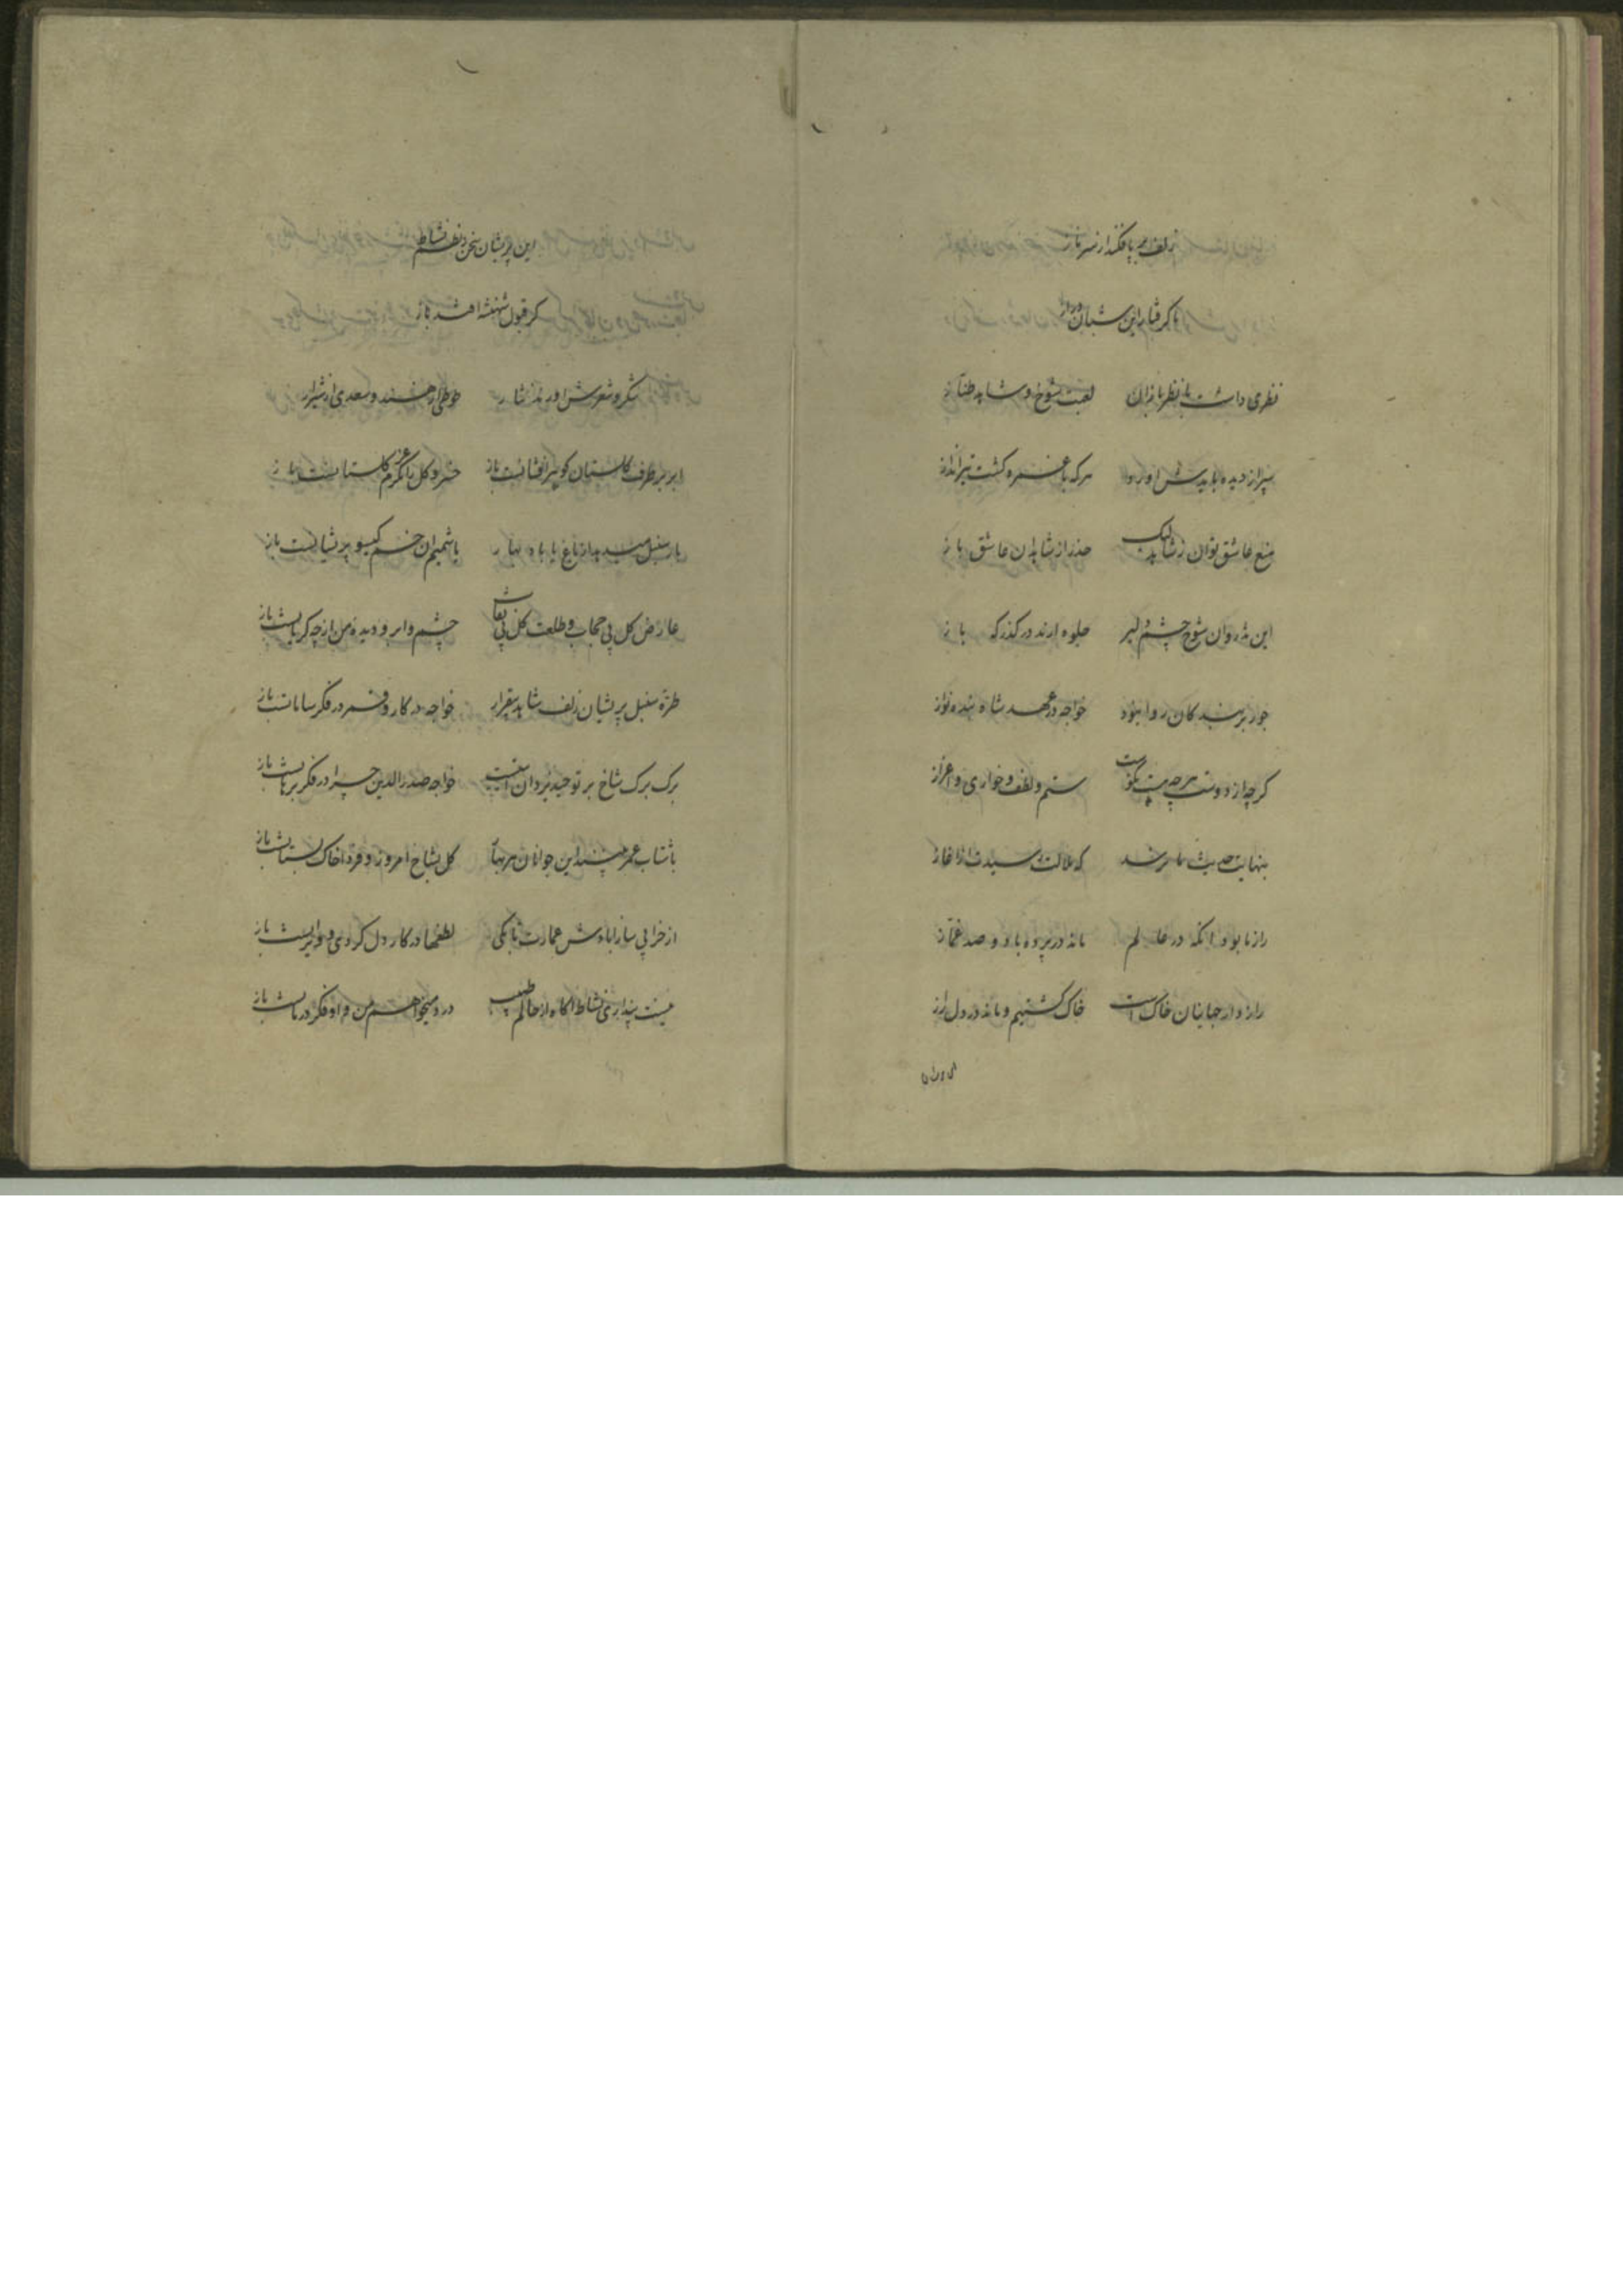 زلف بر پا فکند از سر ناز
تا گرفتار این شبان دراز
نظری داشت با نظربازان لعبت شوخ و شاهد طناز
سپر از دیده بایدش آورد هر که با غمزه گشت تیرانداز
منع عاشق توان ز شاهد لیک حذر از شاهدان عاشق باز
این مه روان شوخ چشم دلبر جلوه آرند در گذرگه باز
جور بر بندگان روا نبود خواجه در عهد شاه بنده نواز
گرچه از دوست هرچه هست نکوست ستم و لطف و خواری و اعزاز
بنهایت حدیث ما نرسد که ملالت رسیدت از آغاز
راز ما بود آنکه در عالم ماند در پرده با دو صد غماز
رازدار جهانیان خاک است خاک گشتیم و ماند در دل راز
این پریشان سخن ز نظم نشاط
گر قبول شهنشه افتد باز
شکر و شعرش آورند نثار طوطی از هند و سعدی از شیراز
ابر بر طرف گلستان گوهر افشانست باز خسرو گل را مگر عزم گلستانست باز
بار سنبل میبد از باغ یا باد بهار با شمیم آن خم گیسو پریشانست باز
عارض گل بی حجاب و طلعت گل بی نقاب چشم وا بر و دیده من از چه گریانست باز
طره سنبل پریشان زلف شاهد بیقرار خواجه در کار و در فکر سامانست باز
برگ برگ شاخ بر توحید یزدان آیتیست خواجه صدرالدین چرا در فکر برهانست باز
با شتاب عمر میبینند این جوانان بهار گل بشاخ امروز و فردا خاک بستانست باز
از خرابی ساز آبادش عمارت تا بکی لطفها در کار دل کردی و ویرانست باز
نیست پنداری نشاط آگاه از حالم طبیب درد میخواهم من و او فکر درمانست باز